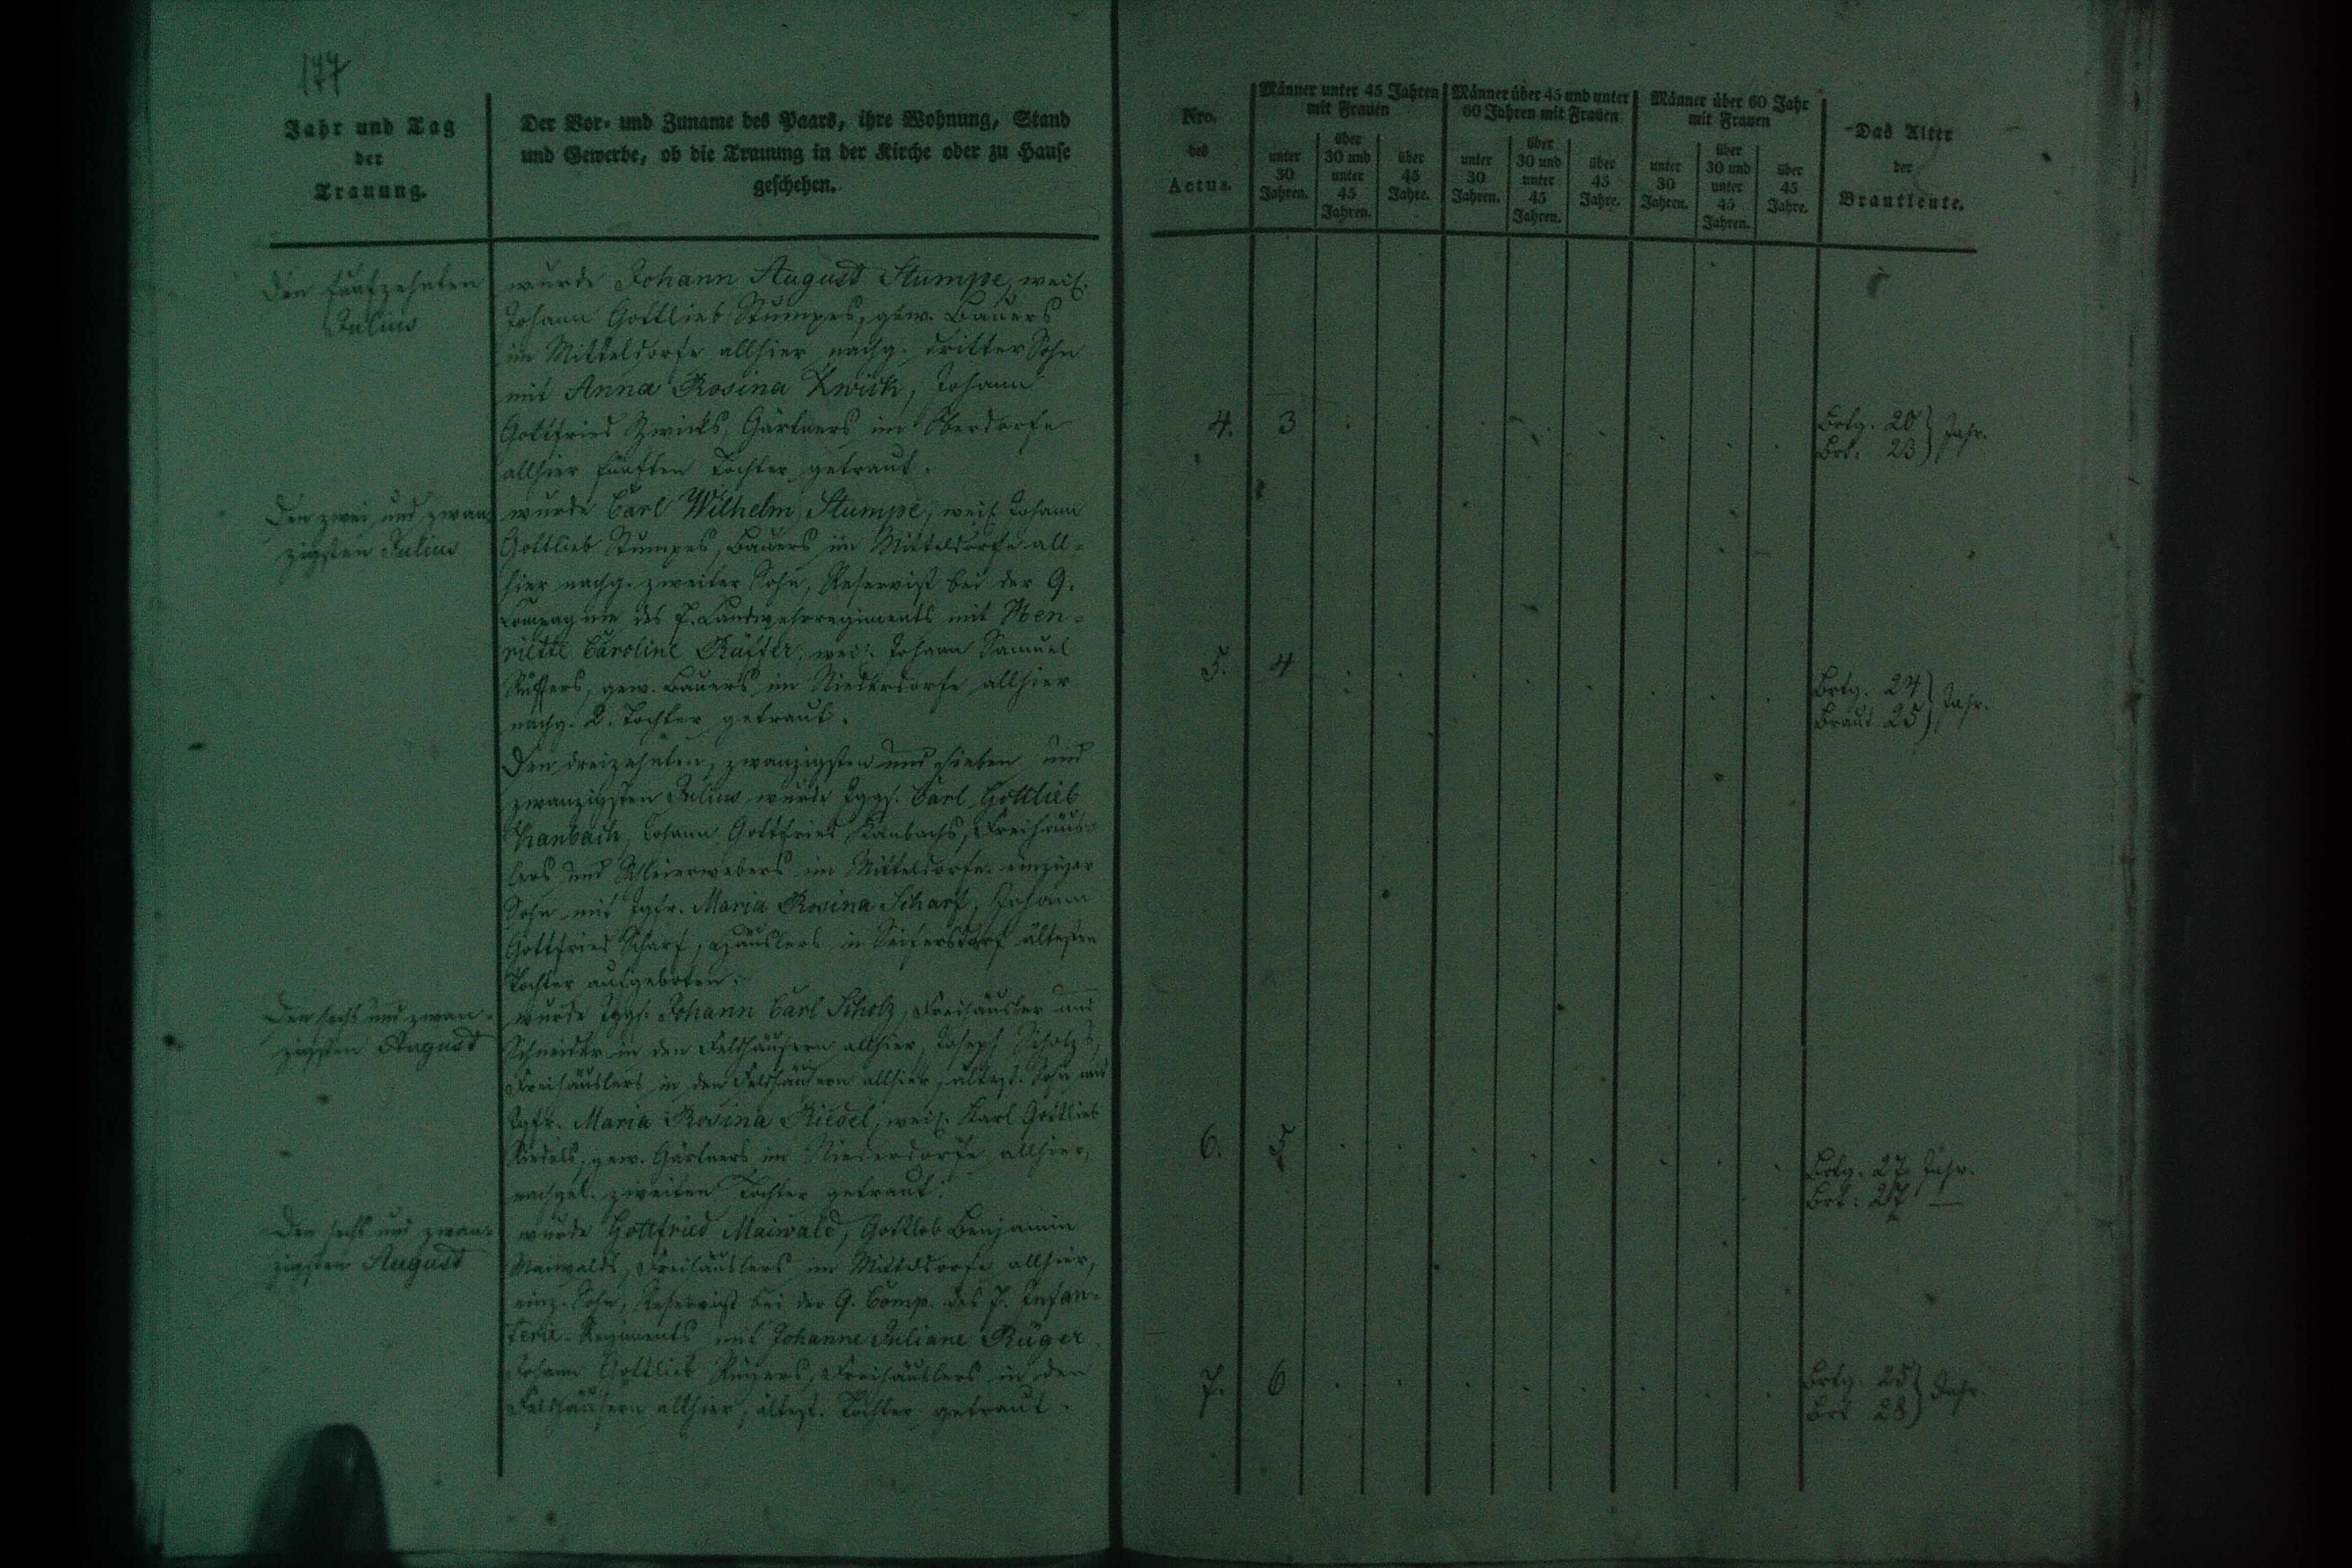 177
Jahr und Tag
der
Trauung.
Der Vor- und Zuname des Paars, ihre Wohnung, Stand
und Gewerbe, ob die Trauung in der Kirche oder zu Hause
geschehen.
Nro.
des
Actus.
Männer unter 45 Jahren
mit Frauen
unter
30
Jahren.
über
30 und
unter
45
Jahren.
über
45
Jahre.
Männer über 45 und unter
60 Jahren mit Frauen
unter
30
Jahren.
über
30 und
unter
45
Jahren.
über
45
Jahre.
Männer über 60 Jahr
mit Frauen
unter
30
Jahren.
über
30 und
unter
45
Jahren.
über
45
Jahre.
Das Alter
der
Brautleute.
Den fünfzehnten
Julius
wurde Johann August Stumpe, weil.
Johann Gottlieb Stumpes, gew. Bauers
im Mitteldorfe allhier nachg. dritter Sohn
mit Anna Rosina Zwick, Johann
Gottfried Zwicks, Gärtners im Oberdorfe
allhier fünften Tochter getraut.
4. 3
Brtg. 20
Brt. 23 } Jahr.
Den zwei und zwan-
zigsten Julius
wurde Carl Wilhelm Stumpe, weil. Johann
Gottlieb Stumpes, Bauers im Mitteldorfe all-
hier nachg. zweiter Sohn, Reservist bei der 9.
Compagnie des 7. Landwehrregiments mit Hen-
riette Caroline Rüffer, weil. Johann Samuel
Rüffers, gew. Bauers im Niederdorfe allhier
nachg. 2. Tochter getraut.
5. 4
Brtg. 24
Braut 25 } Jahr.
Den dreizehnten, zwanzigsten und sieben und
zwanzigsten Julius wurde Jggs. Carl Gottlieb
Kanbach, Johann Gottfried Kanbachs, Freihäus-
lers und Schleierwebers im Mitteldorfe einziger
Sohn mit Jgfr. Maria Rosina Scharf, Johann
Gottfried Scharf, Häuslers in Seifersdorf ältesten
Tochter aufgeboten.
Den sechs und zwan-
zigsten August
wurde Jggs. Johann Carl Scholz, Freihäusler und
Schneider in den Feldhäusern allhier, Joseph Scholz's,
Freihäuslers in den Feldhäusern allhier, ältest. Sohn mit
Jgfr. Maria Rosina Riedel, weil. Karl Gottlieb
Riedels, gew. Gärtners im Niederdorfe allhier,
nachgel. zweiten Tochter getraut.
6. 5
Brtg. 27 Jahr.
Brt.
Den sechs und zwan-
zigsten August
wurde Gottfried Maiwald, Gottlob Benjamin
Maiwalds, Freihäuslers im Mitteldorfe allhier,
einz. Sohn, Reservist bei der 9. Comp. des 7. Infan-
terie-Regiments mit Johanne Juliane Rüger
Johann Gottlieb Rügers, Freihäuslers in den
Feldhäusern allhier, ältest. Tochter getraut.
7. 6
Brtg. 25
Brt 28 } Jahr.